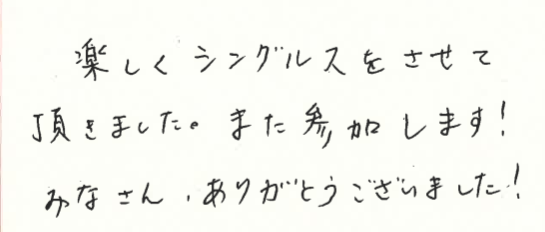 楽しくシングルスをさせて
頂きました。また参加します!
みなさん、ありがとうございました!